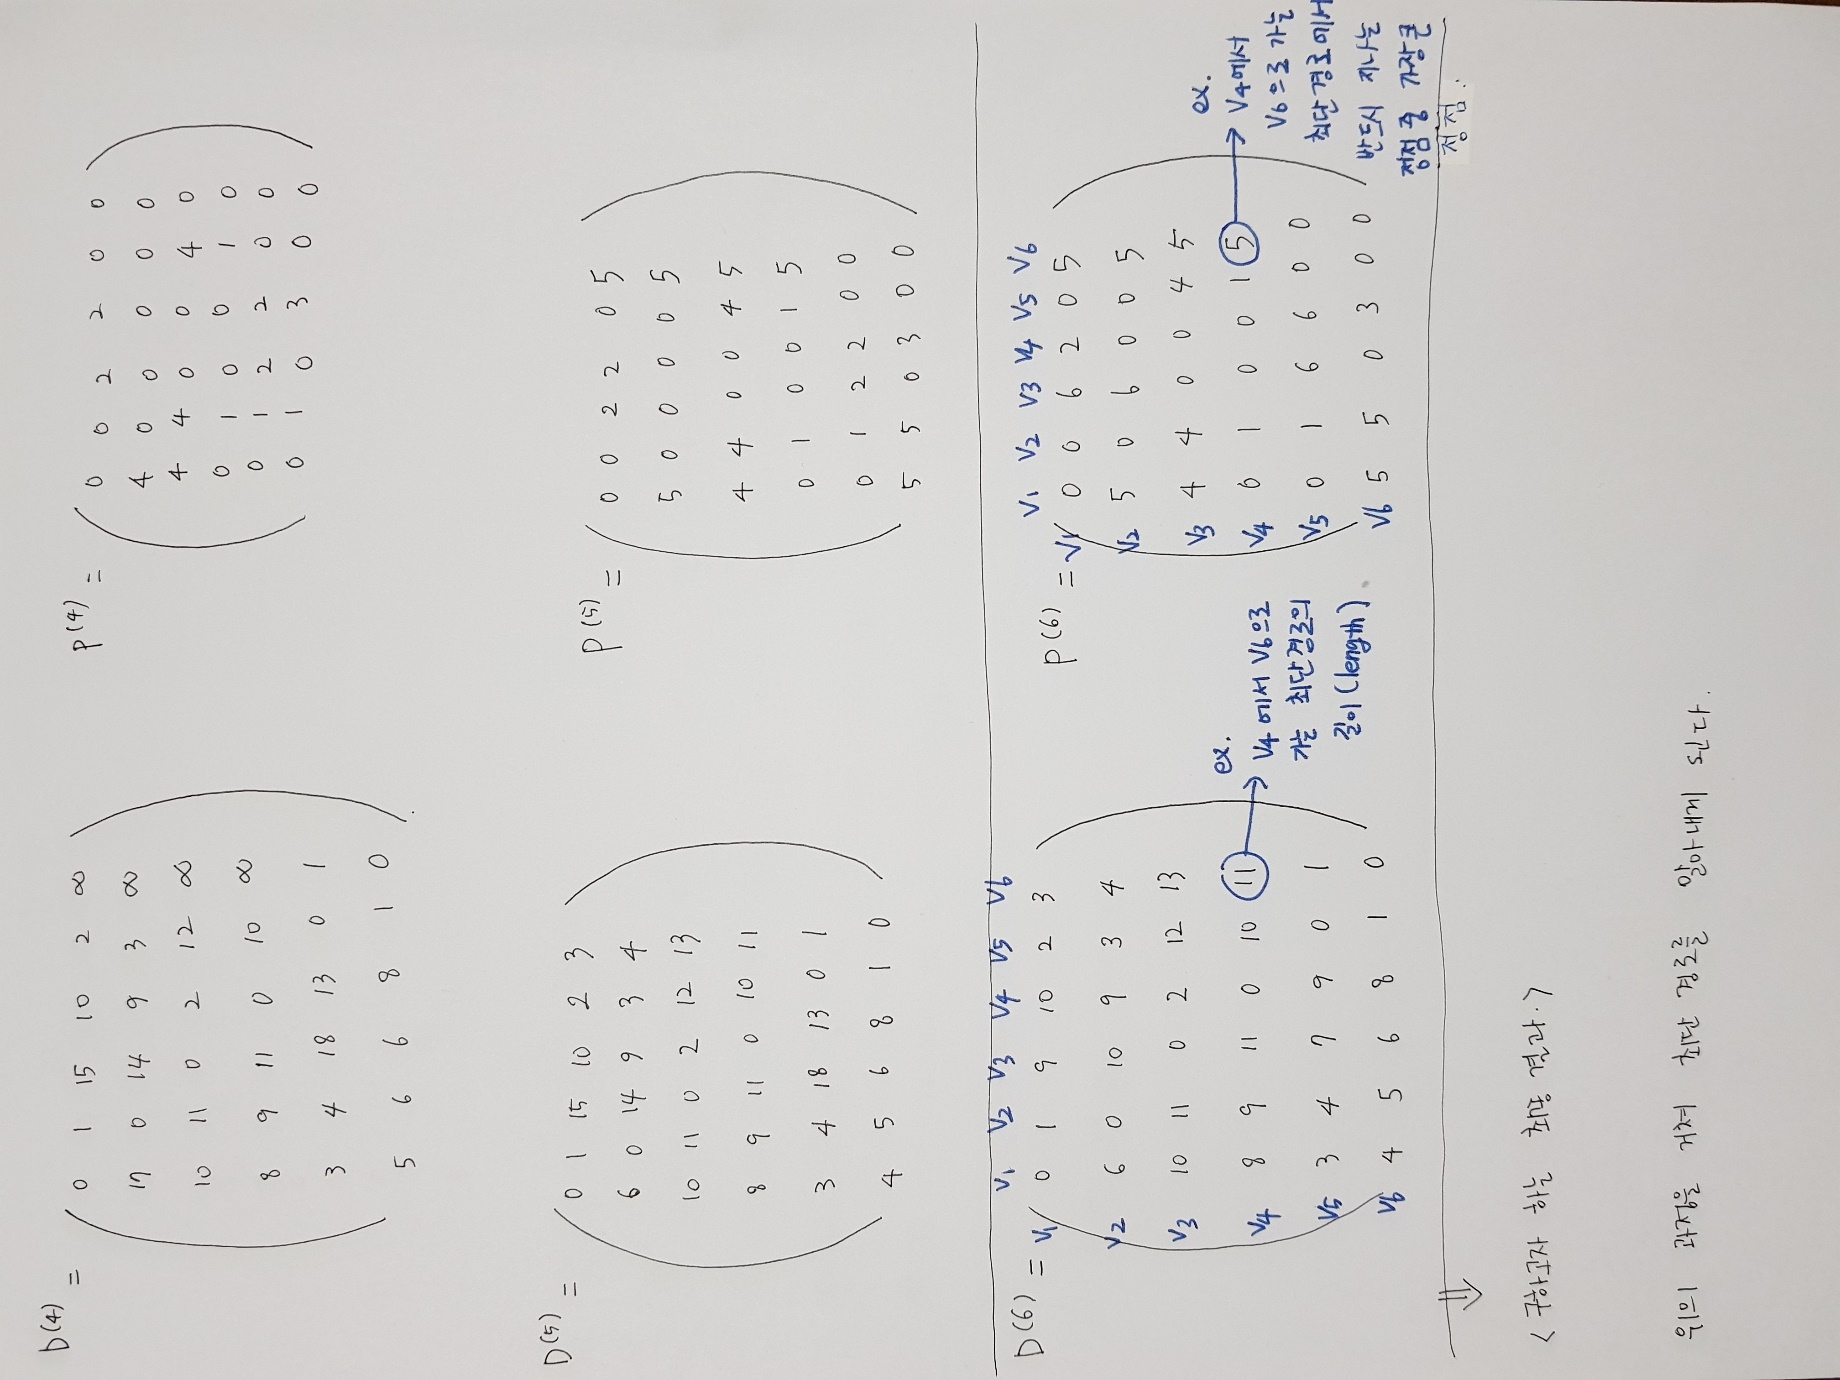 D(4) =
0 1 15 10 2 ∞
17 0 14 9 3 ∞
10 11 0 2 12 ∞
8 9 11 0 10 ∞
3 4 18 13 0 1
5 6 6 8 1 0
P(4) =
0 0 2 2 0 0
4 0 0 0 0 0
4 4 0 0 4 0
0 1 0 0 1 0
0 1 2 2 0 0
0 1 0 3 0 0
D(5) =
0 1 15 10 2 3
6 0 14 9 3 4
10 11 0 2 12 13
8 9 11 0 10 11
3 4 18 13 0 1
4 5 6 8 1 0
P(5) =
0 0 2 2 0 5
5 0 0 0 0 5
4 4 0 0 4 5
0 1 0 0 1 5
0 1 2 2 0 0
5 5 0 3 0 0
D(6) =
V1 V2 V3 V4 V5 V6
V1 0 1 9 10 2 3
V2 6 0 10 9 3 4
V3 10 11 0 2 12 13
V4 8 9 11 0 10 11
V5 3 4 7 9 0 1
V6 4 5 6 8 1 0
ex.
→ V4에서 V6으로
가는 최단경로의
길이(length).
P(6) =
V1 V2 V3 V4 V5 V6
V1 0 0 6 2 0 5
V2 5 0 6 0 0 5
V3 4 4 0 0 4 5
V4 0 1 0 0 1 5
V5 0 1 6 6 0 0
V6 5 5 0 3 0 0
ex.
→ V4에서
V6으로 가는
최단경로에서
반드시 지나는
정점 중 가장큰
정점.
⇒
<구하고자 하는 최종 결과.>
위의 과정을 거쳐 최단 경로를 알아내게 된다.